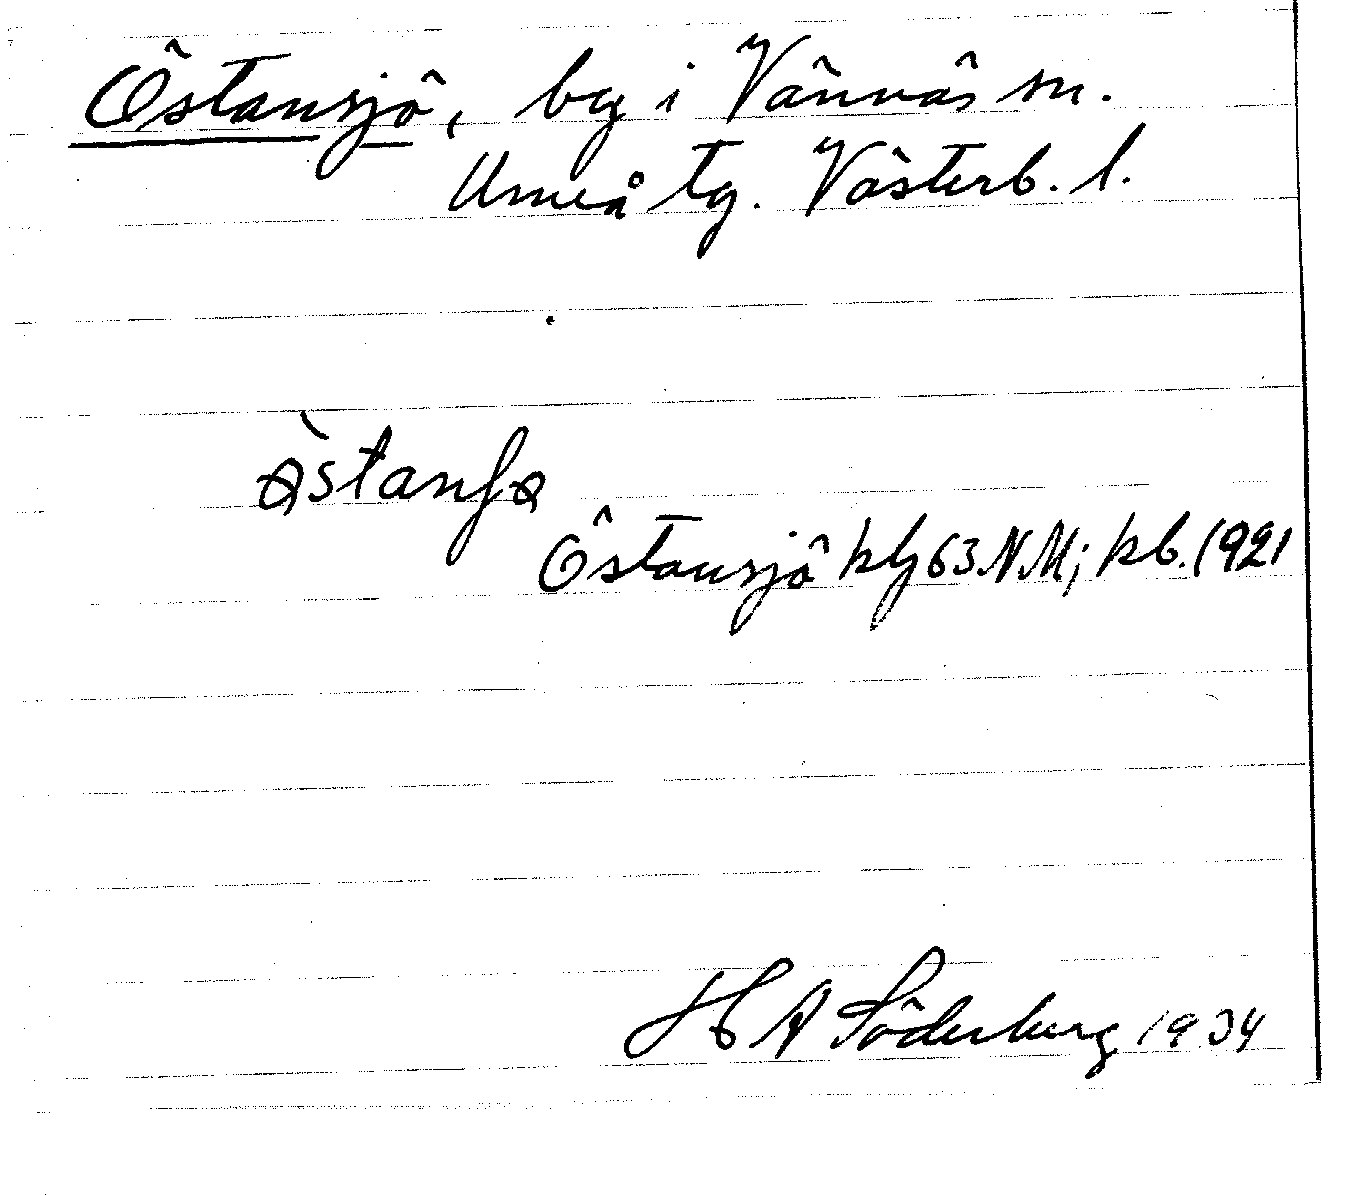 Östansjö, by i Vännäs sn.
Umeå tg. Västerb. l.
Östansjö kbl 63 NM; kb. 1921
H A Söderberg 1934